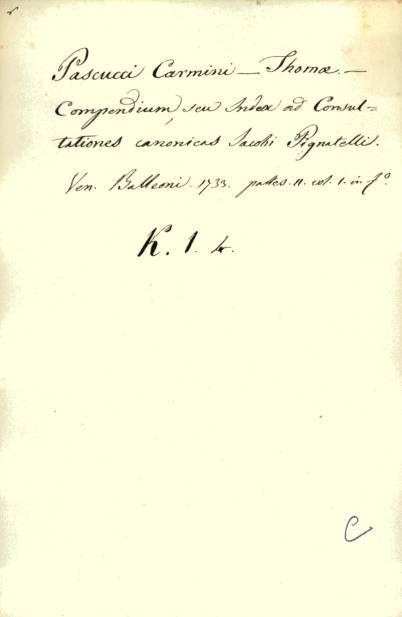 Pascucci Carmini — Thomæ. —
Compendium, seu Index ad Consul=
tationes canonicas Jacobi Pignatelli.
Ven. Balleoni. 1733. partes. II. vol. 1. in fº.
K. 1. 4.
C